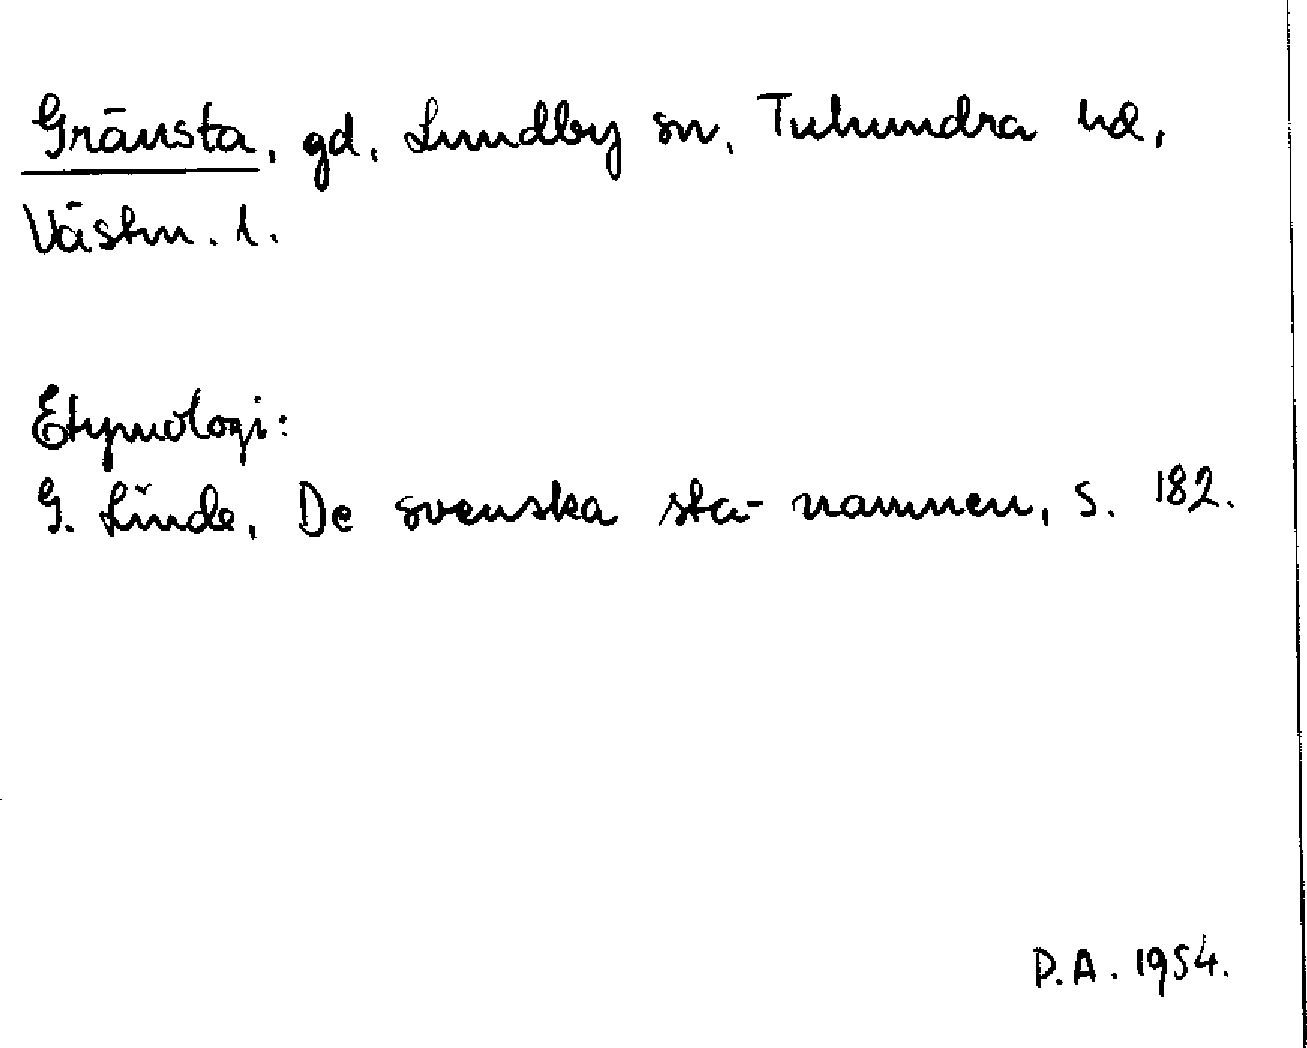 Gränsta, gd, Lundby sn, Tuhundra hd,
Västm. l.
Etymologi:
G. Linde, De svenska sta- namnen, s. 182.
D.A. 1954.